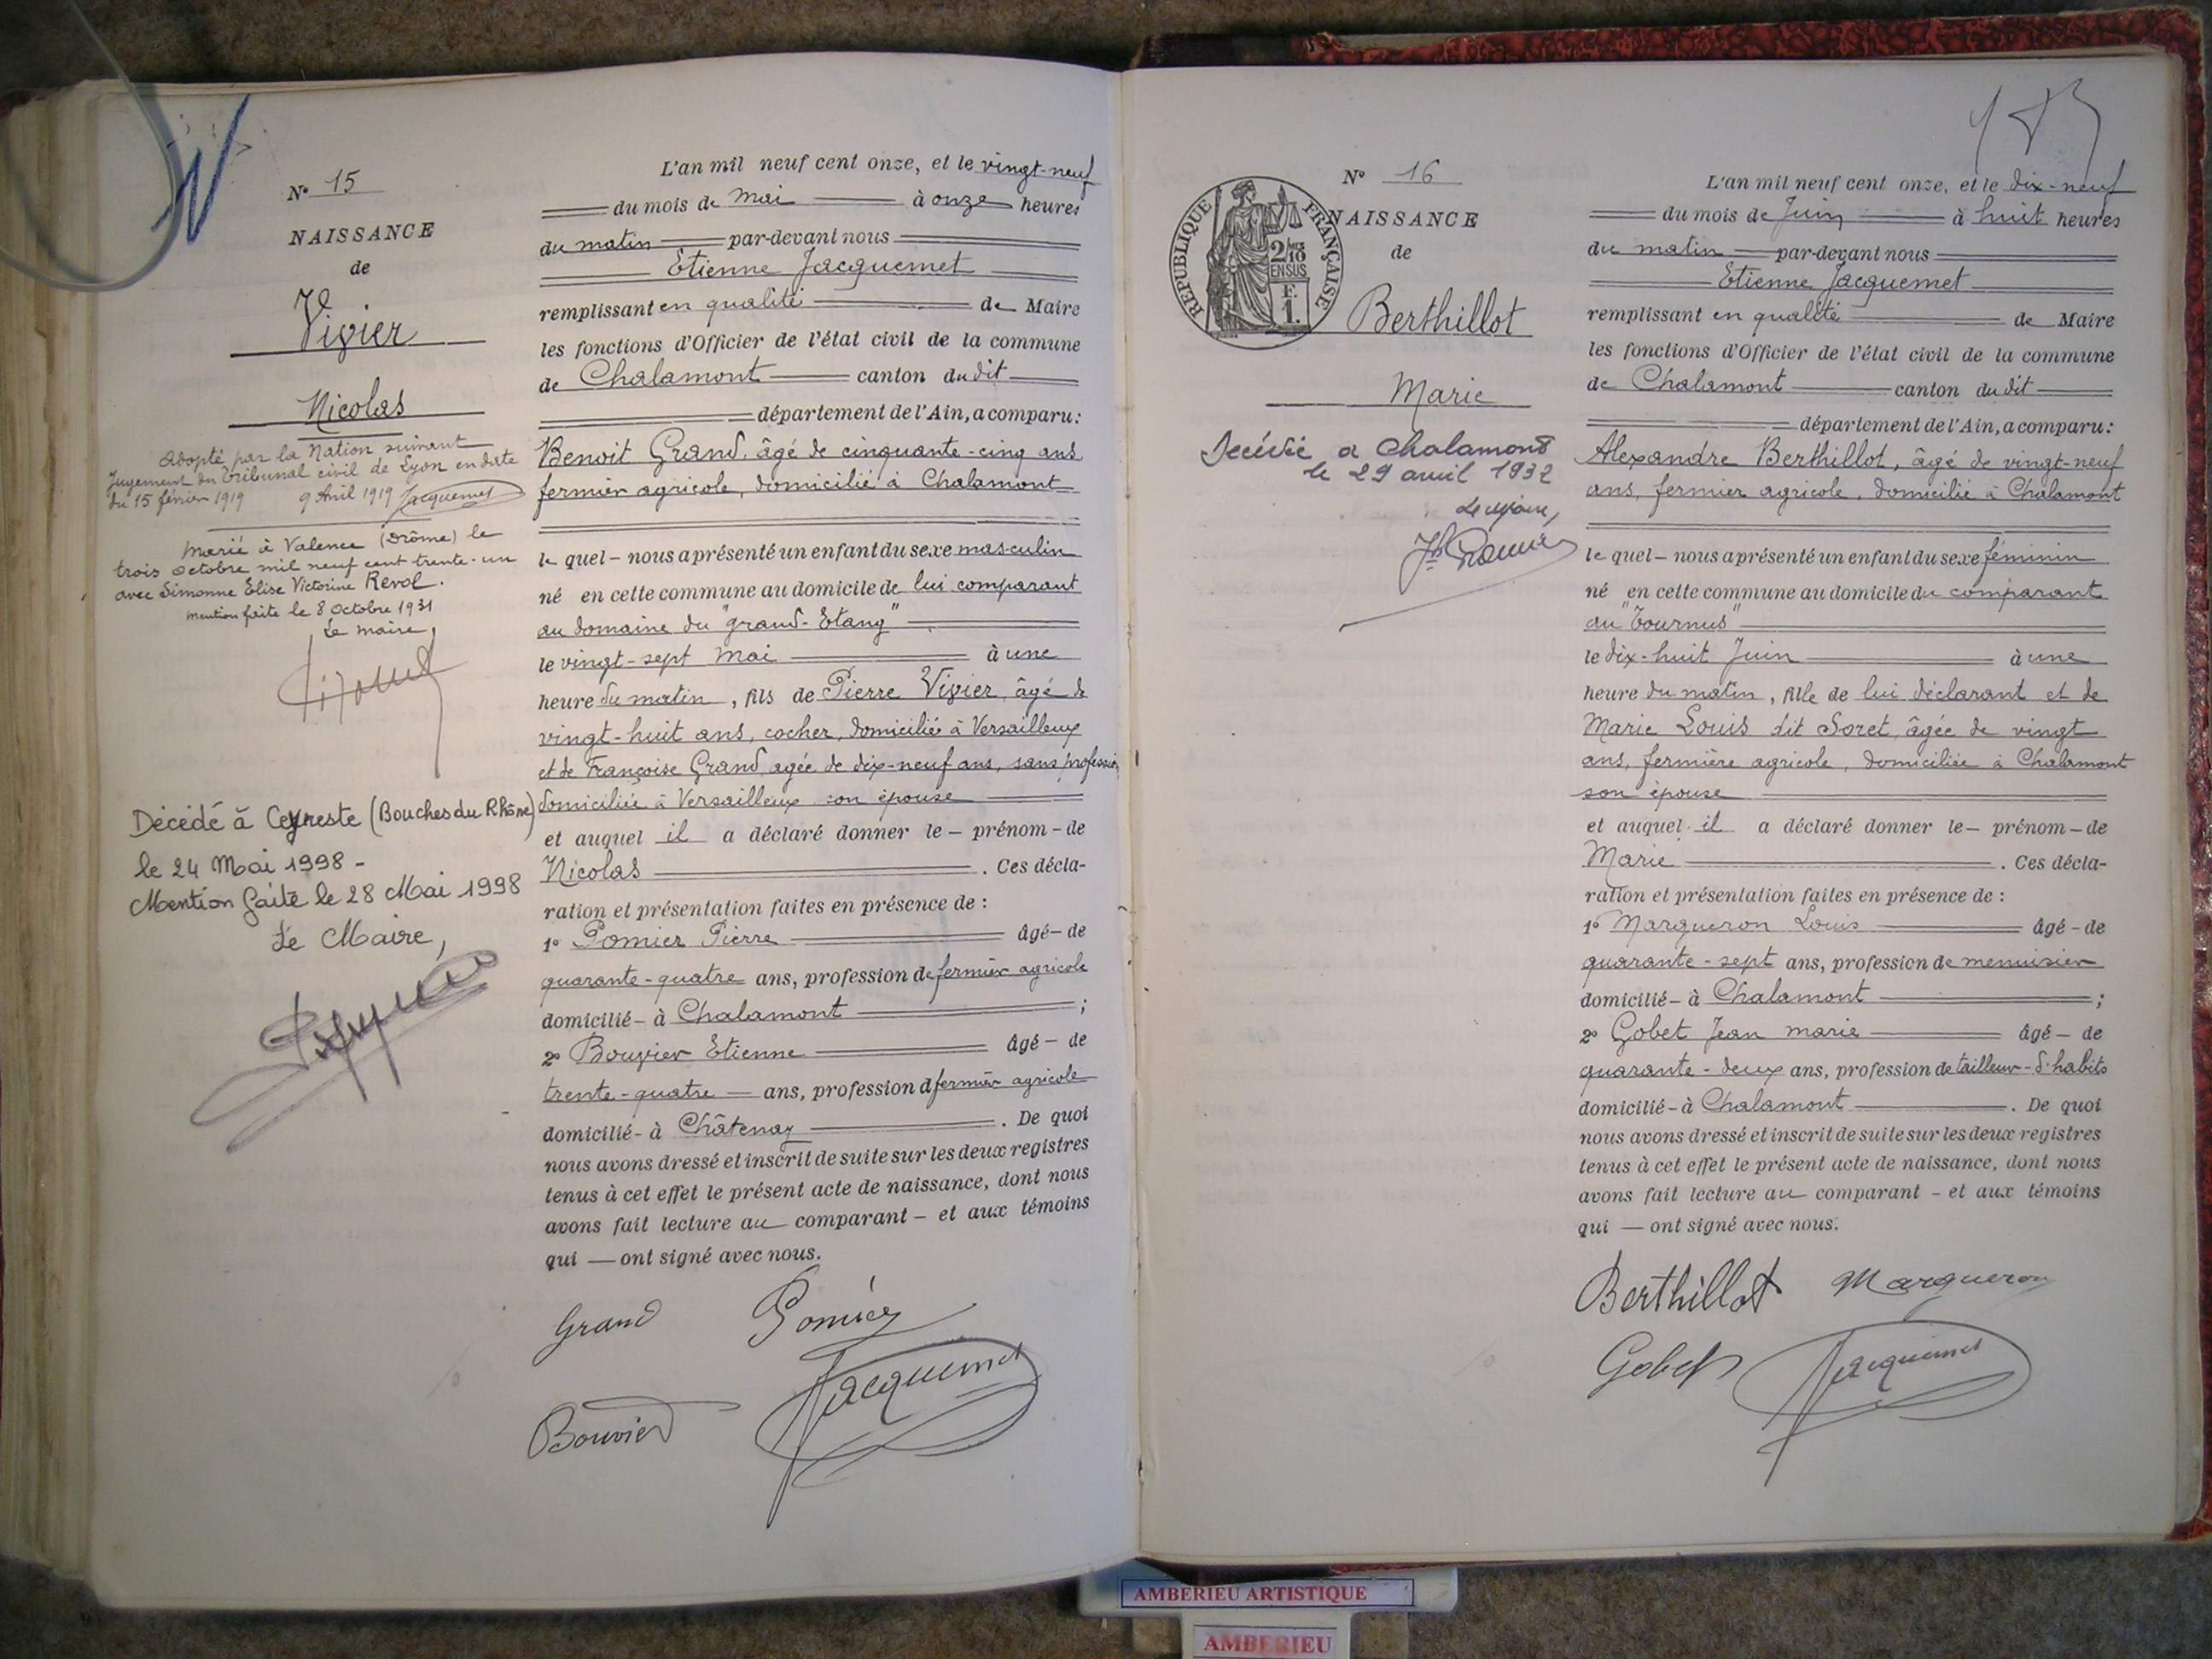 Nº 15
NAISSANCE
de
Vivier
Nicolas
Adopté par la Nation suivant
Jugement du Tribunal civil de Lyon en date
du 15 février 1919 9 Avril 1919 Jacquemet
Marié à Valence (Drôme) le
trois octobre mil neuf cent trente-un
avec Simonne Elise Victorine Revol.
mention faite le 8 octobre 1931
Le maire,
Décédé à Ceyreste (Bouches du Rhône)
le 24 Mai 1998 -
Mention faite le 28 Mai 1998
Le Maire,
L'an mil neuf cent onze, et le vingt-neuf
du mois de Mai à onze heures
du matin par-devant nous
Etienne Jacquemet
remplissant en qualité de Maire
les fonctions d'Officier de l'état civil de la commune
de Chalamont canton du dit
département de l'Ain, a comparu:
Benoit Grand, âgé de cinquante-cinq ans
fermier agricole, domicilié à Chalamont
le quel - nous a présenté un enfant du sexe masculin
né en cette commune au domicile de lui comparant
au domaine du "grand-Etang"
le vingt-sept Mai à une
heure du matin, fils de Pierre Vivier, âgé de
vingt-huit ans, cocher, domicilié à Versailleux
et de Françoise Grand, agée de dix-neuf ans, sans profession
domiciliée à Versailleux son épouse
et auquel il a déclaré donner le - prénom - de
Nicolas . Ces décla-
ration et présentation faites en présence de :
1º Pomier Pierre âgé - de
quarante-quatre ans, profession de fermier agricole
domicilié - à Chalamont ;
2º Bouvier Etienne âgé - de
trente-quatre ans, profession d fermier agricole
domicilié - à Châtenay . De quoi
nous avons dressé et inscrit de suite sur les deux registres
tenus à cet effet le présent acte de naissance, dont nous
avons fait lecture au comparant - et aux témoins
qui — ont signé avec nous.
Grand Pomier
Bouvier Jacquemet
Nº 16
NAISSANCE
de
RÉPUBLIQUE FRANÇAISE
2/10
EN SUS
F.
1.
Berthillot
Marie
Décédée a Chalamont
le 29 avril 1932
Le Maire,
L'an mil neuf cent onze, et le dix-neuf
du mois de Juin à huit heures
du matin par-devant nous
Etienne Jacquemet
remplissant en qualité de Maire
les fonctions d'Officier de l'état civil de la commune
de Chalamont canton du dit
département de l'Ain, a comparu:
Alexandre Berthillot, âgé de vingt-neuf
ans, fermier agricole, domicilié à Chalamont
le quel - nous a présenté un enfant du sexe féminin
né en cette commune au domicile du comparant
au "Tournus"
le dix-huit Juin à une
heure du matin, fille de lui déclarant et de
Marie Louis dit Soret, âgée de vingt
ans, fermière agricole, domiciliée à Chalamont
son épouse
et auquel il a déclaré donner le - prénom - de
Marie . Ces décla-
ration et présentation faites en présence de :
1º Margueron Louis âgé - de
quarante-sept ans, profession de menuisier
domicilié - à Chalamont ;
2º Gobet Jean marie âgé - de
quarante-deux ans, profession de tailleur-d'habits
domicilié - à Chalamont . De quoi
nous avons dressé et inscrit de suite sur les deux registres
tenus à cet effet le présent acte de naissance, dont nous
avons fait lecture au comparant - et aux témoins
qui — ont signé avec nous.
Berthillot Margueron
Gobet Jacquemet
AMBERIEU ARTISTIQUE
AMBERIEU